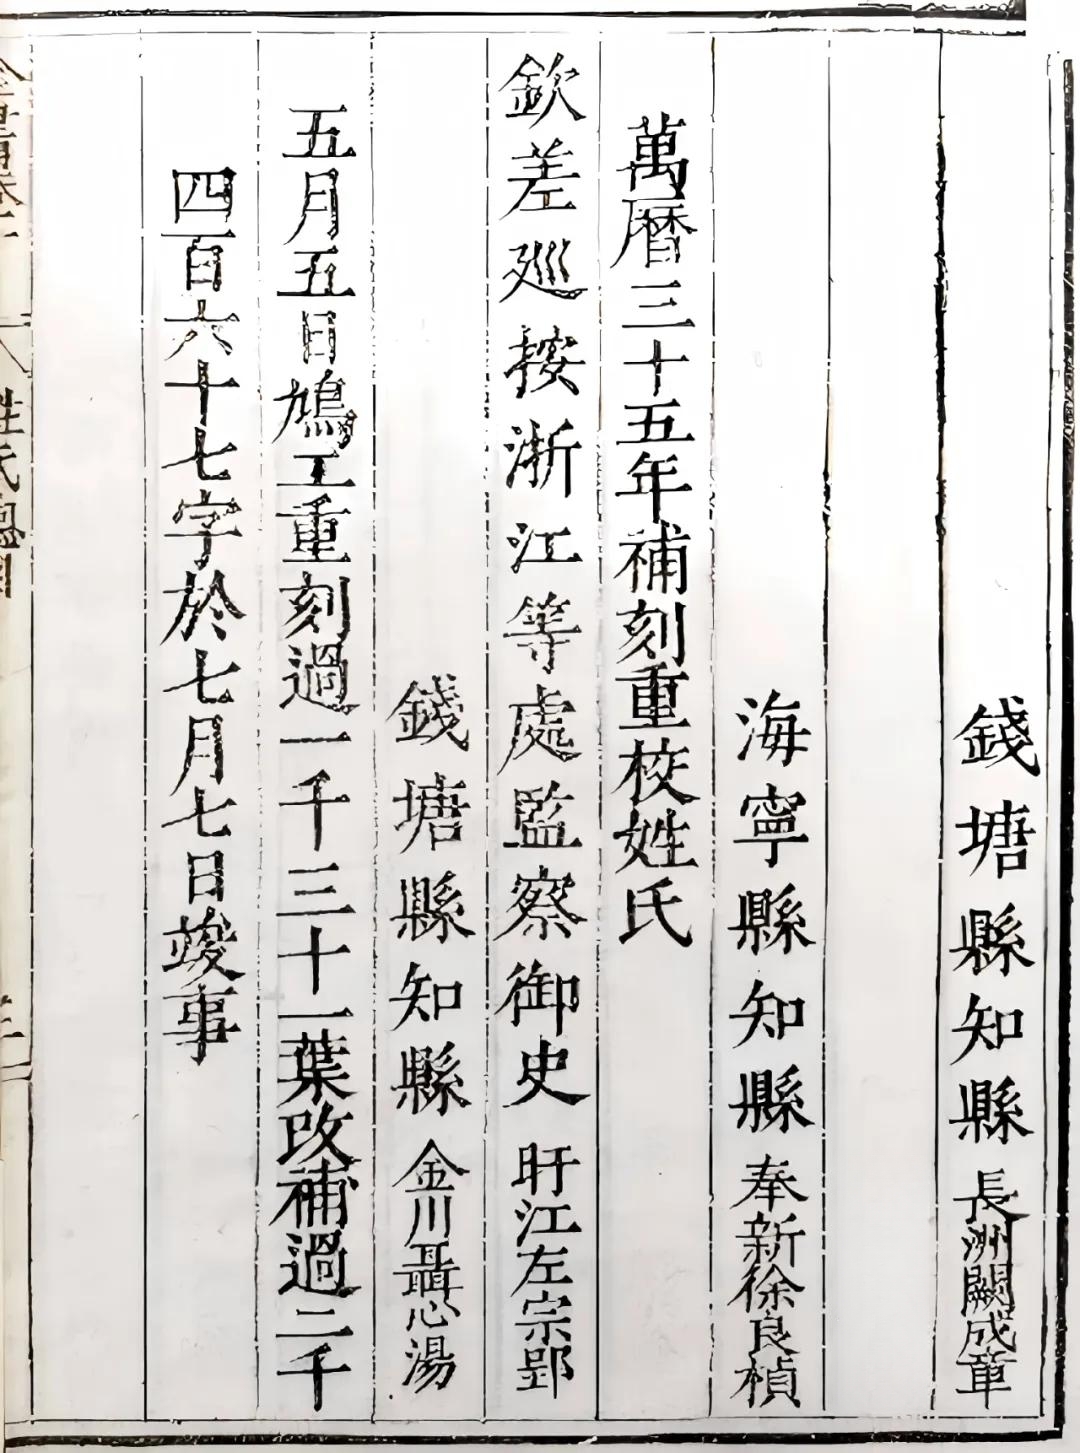 錢塘縣知縣長洲闕成章
海寧縣知縣奉新徐良楨
萬曆三十五年補刻重校姓氏
欽差廵按浙江等處監察御史盱江左宗郢
錢塘縣知縣金川聶心湯
五月五日鳩工重刻過一千三十一葉改補過二千
四百六十七字於七月七日竣事